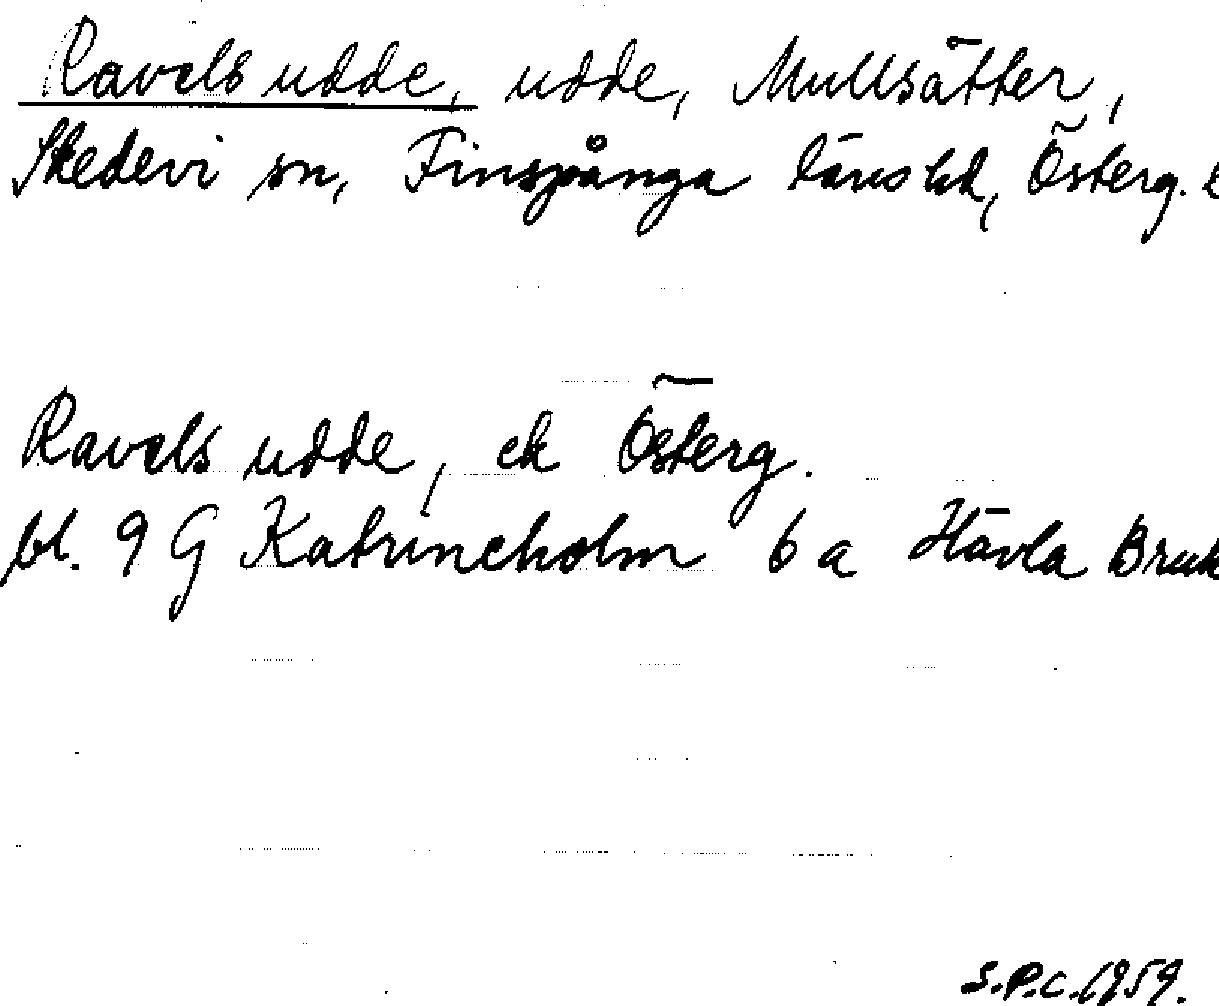 Ravels udde, udde, Mullsätter,
Skedevi sn, Finspånga läns hd, Österg. l
Ravels udde, ek Österg.
bl. 9 G Katrineholm 6 a Hävla Bruk
S.P.C. 1959.